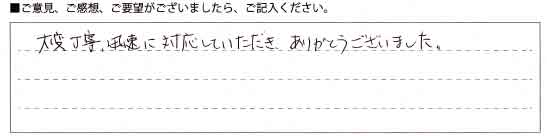 ■ご意見、ご感想、ご要望がございましたら、ご記入ください。
大変丁寧、迅速に対応していただき ありがとうございました。